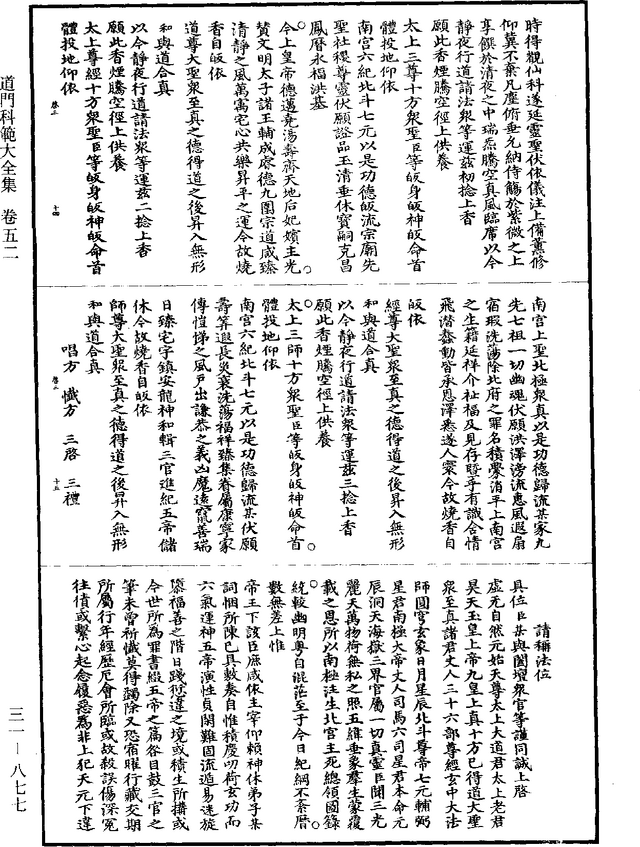 道門科範大全集　卷五二
三一—八七七
時得觀仙科遂延靈聖伏依儀注上備薰修
仰冀不棄凡塵俯垂允納侍觴於紫微之上
享饌於清夜之中瑞烝騰空真風臨席以今
靜夜行道請法衆等運茲初捻上香
願此香煙騰空徑上供養
太上三尊十方衆聖臣等皈身皈神皈命首
體投地仰依
南宮六紀北斗七元以是功德皈流宗廟先
聖社稷尊靈伏願證品玉清垂休寶嗣克昌
鳳曆永福洪基
今上皇帝德邁堯湯壽齊天地后妃嬪主光
贊文明太子諸王輔成睿德九圍宗道咸臻
清靜之風萬寓宅心共樂昇平之運今故燒
香自皈依
道尊大聖衆至真之德得道之後昇入無形
和與道合真
以今靜夜行道請法衆等運茲二捻上香
願此香煙騰空徑上供養
太上尊經十方衆聖臣等皈身皈神皈命首
體投地仰依
十四
南宮上聖北極衆真以是功德歸流某家九
先七祖一切幽魂伏願洪澤滂流惠風遐扇
宿瑕洗蕩除北府之罪名積釁消平上南宮
之生籍延祥介祉福及見存曁于有識含情
飛潛蠢動皆承恩澤悉遂人寰今故燒香自
皈依
經尊大聖衆至真之德得道之後昇入無形
和與道合真
以今靜夜行道請法衆等運茲三捻上香
願此香煙騰空徑上供養
太上三師十方衆聖臣等皈身皈神皈命首
體投地仰依
南宮六紀北斗七元以是功德歸流某伏願
壽筭遐長災衰洗蕩福祥臻集眷屬康寧家
傳愷悌之風戶出謙恭之義凶魔遠竄善瑞
日臻宅宇鎮安龍神和輯三官進紀五帝儲
休今故燒香自皈依
師尊大聖衆至真之德得道之後昇入無形
和與道合真
唱方　懺方　三啓　三禮
十五
請稱法位
具位臣某與闔壇衆官等謹同誠上啓
虛无自然元始天尊太上大道君太上老君
昊天玉皇上帝九皇上真十方已得道大聖
衆至真諸君丈人三十六部尊經玄中大法
師圓穹玄象日月星辰北斗尊帝七元輔弼
星君南極大帝丈人司馬六司星君本命元
辰洞天海嶽三界官屬一切真靈臣聞三光
麗天萬物荷無私之照五緯垂象羣生蒙覆
載之恩所以南極注生北宮主死總領圖籙
統較幽明粵自混茫至于今日紀綱不紊曆
數無差上惟
帝王下該臣庶咸依主宰仰賴神休弟子某
詞悃所陳已具敷奏自惟積慶叨荷玄功而
六氣運神五帝演性貞閑難固流遁易迷旋
隳福善之階日踐愆違之境或積生所搆或
今世所爲罪書綴五帝之篇咎目鼓三官之
筆未曾祈懺莫得蠲除又恐宿曜行藏交期
所屬行年經歷厄會所臨或故殺誤傷深寃
往債或繫心起念履惡爲非上犯天元下違